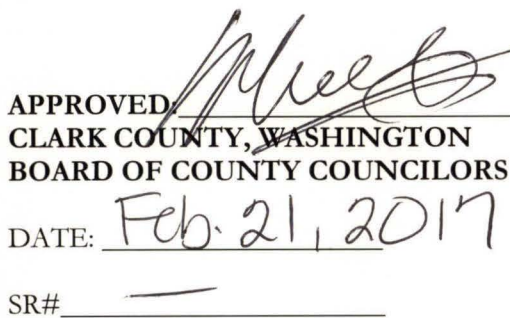 APPROVED:
CLARK COUNTY, WASHINGTON
BOARD OF COUNTY COUNCILORS
DATE: Feb. 21, 2017
SR# —